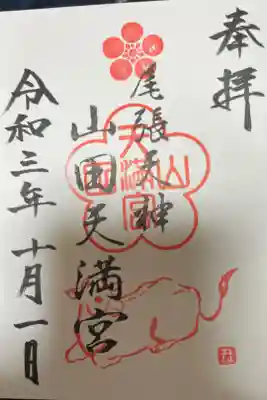 奉拝
尾張天神
山田天満宮
令和三年十月一日